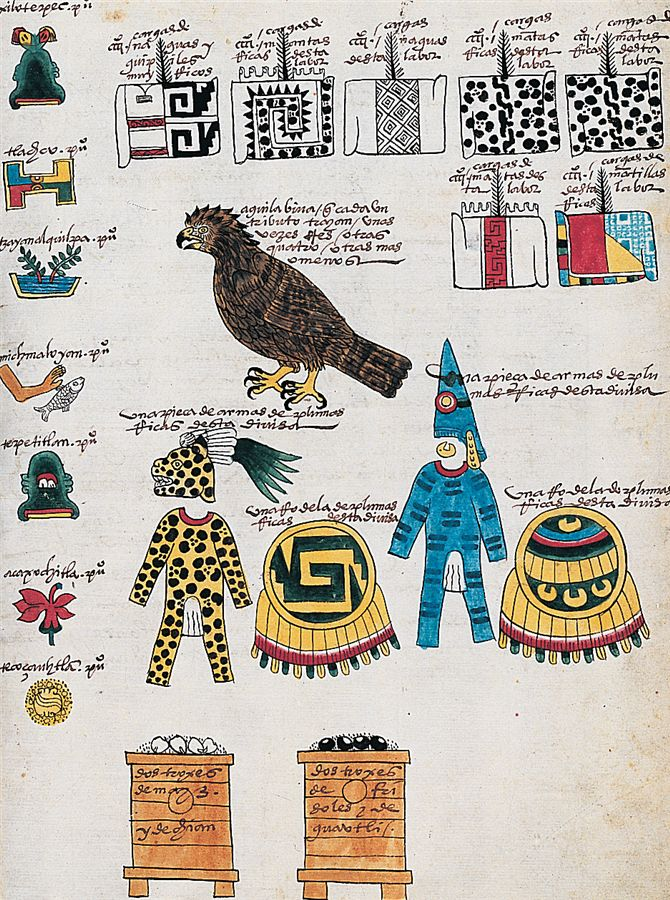 xilotepec. pu
tlachco. puo
tzayanalquilpa. puo
michmaloyan. puo
tepetitlan. puo
acaxochitla. puo
tecoçauhtla. puo
cargas de
naguas y
guipiles
muy ricos
cargas
mantas
ricas desta
labor
cargas
naguas
desta labor
cargas
mātas
ricas desta
labor
cargas de
mātas
ricas desta
labor
cargas de
mātas des
ta labor
cargas de
matillas
desta labor
ricas
aguila biua / q̄ cada un
tributo trayan / unas
vezes tres / otras
quatro / otras mas
o menos
una pieça de armas de plumas
ricas desta divisa
una pieça de armas de plu
mas ricas desta divisa
una rodela de plumas
ricas desta divisa
una rodela de plumas
ricas desta divisa
dos troxes
de mayz
y de chian
dos troxes
de fri
soles y de
guautli